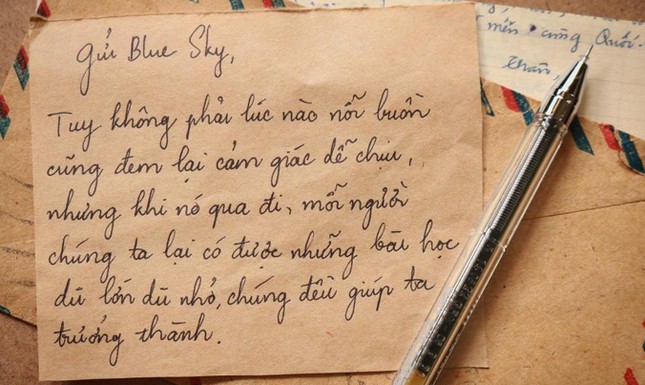 Gửi Blue Sky,
Tuy không phải lúc nào nỗi buồn
cũng đem lại cảm giác dễ chịu,
nhưng khi nó qua đi, mỗi người
chúng ta lại có được những bài học
dù lớn dù nhỏ, chúng đều giúp ta
trưởng thành.
mến cùng Quốc
thân,